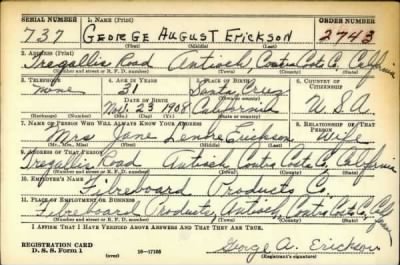 SERIAL NUMBER 1. NAME (Print) ORDER NUMBER
737 GEORGE AUGUST ERICKSON 2743
(First) (Middle) (Last)
2. ADDRESS (Print)
Tregallis Road Antioch, Contra Costa Co, California
(Number and street or R. F. D. number) (Town) (County) (State)
3. TELEPHONE 4. AGE IN YEARS 5. PLACE OF BIRTH 6. COUNTRY OF CITIZENSHIP
None 31 Santa Cruz
DATE OF BIRTH
Nov. 23 1908 California U.S.A
(Exchange) (Number) (Mo.) (Day) (Yr.) (State or country)
7. NAME OF PERSON WHO WILL ALWAYS KNOW YOUR ADDRESS 8. RELATIONSHIP OF THAT PERSON
Mrs Jane Erickson Wife
(Mr., Mrs., Miss) (First) (Middle) (Last)
9. ADDRESS OF THAT PERSON
Tregallis Road Antioch, Contra Costa Co, California
(Number and street or R. F. D. number) (Town) (County) (State)
10. EMPLOYER'S NAME
Fibreboard Products Co.
11. PLACE OF EMPLOYMENT OR BUSINESS
Fibreboard Products, Antioch, Contra Costa Co, California
(Number and street or R. F. D. number) (Town) (County) (State)
I AFFIRM THAT I HAVE VERIFIED ABOVE ANSWERS AND THAT THEY ARE TRUE.
REGISTRATION CARD
D. S. S. Form 1 (over) 16—17105
George A. Erickson
(Registrant's signature)